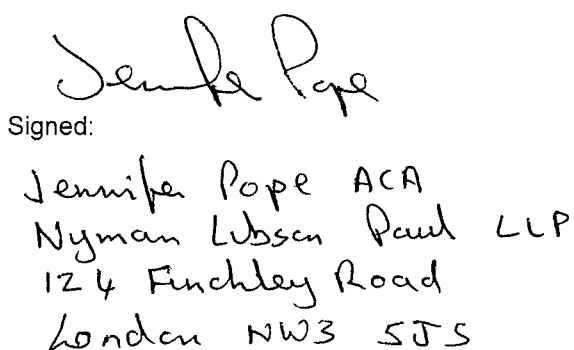 Jennifer Pope
Signed:
Jennifer Pope ACA
Nyman Libson Paul LLP
124 Finchley Road
London NW3 5JS